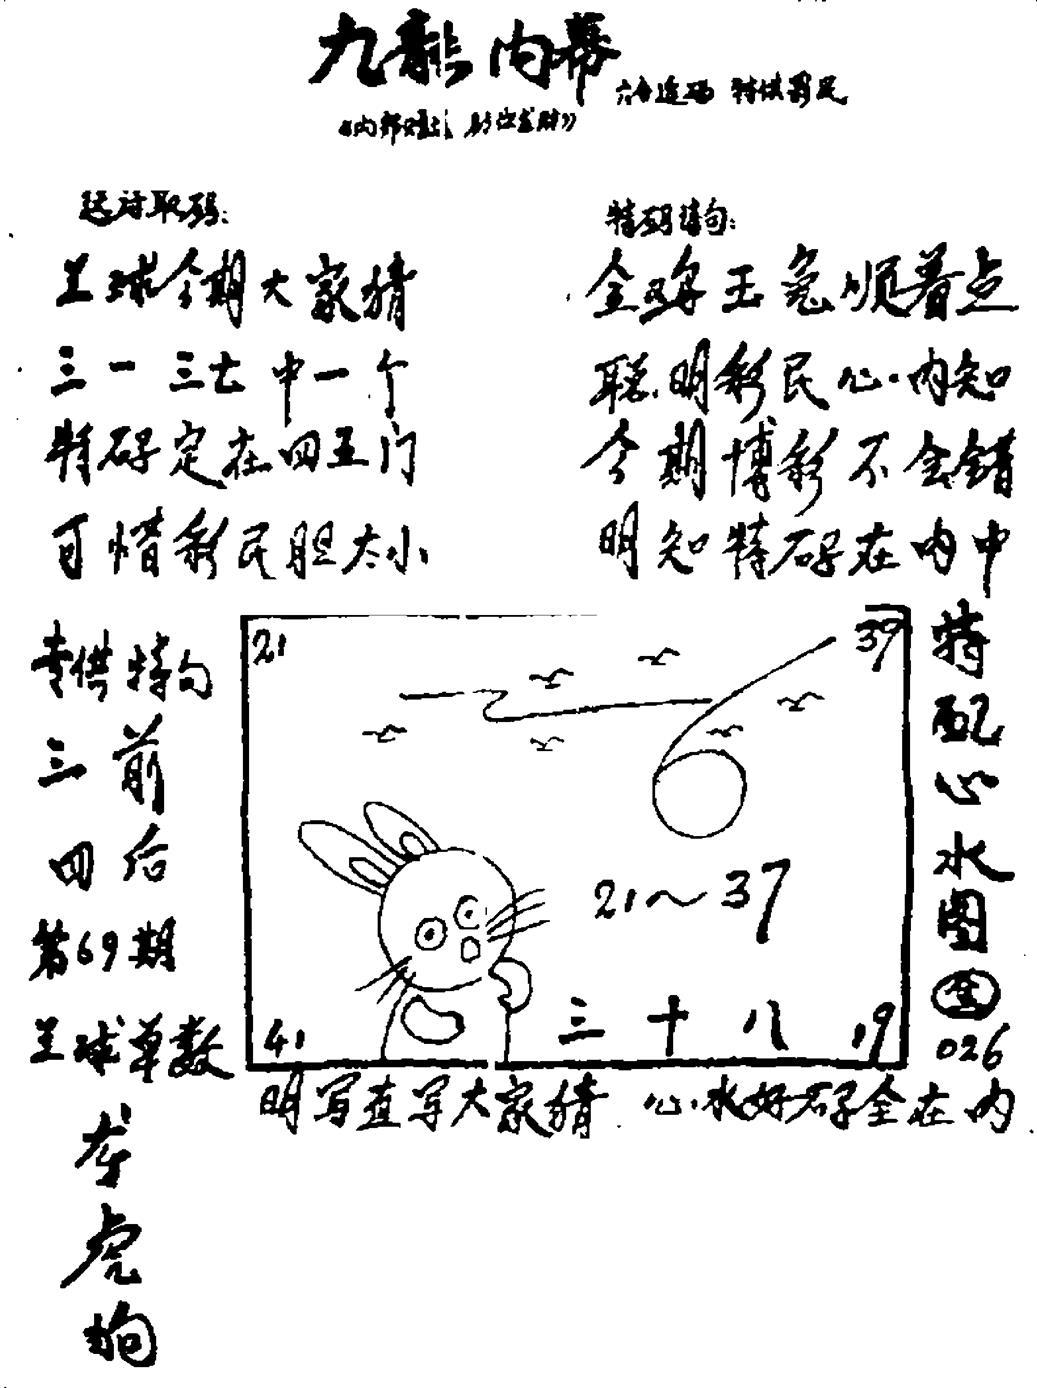 九龍内幕
六合连码 特供彩民
《内部
运财取码:
特码诗句:
兰球今期大家猜
三一三七中一个
特码定在四五门
可惜彩民胆太小
金鸡玉兔顺着点
聪明彩民心内知
今期博彩不会错
明知特码在内中
专供特句
三前
四后
第69期
兰球单数
龙
虎
狗
21
39
21～37
三十八
41
19
特配心水图
026
明写直写大家猜 心水好码全在内